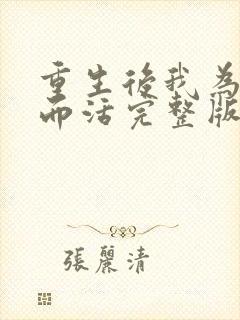 重生後我為
而活完整版
張麗清